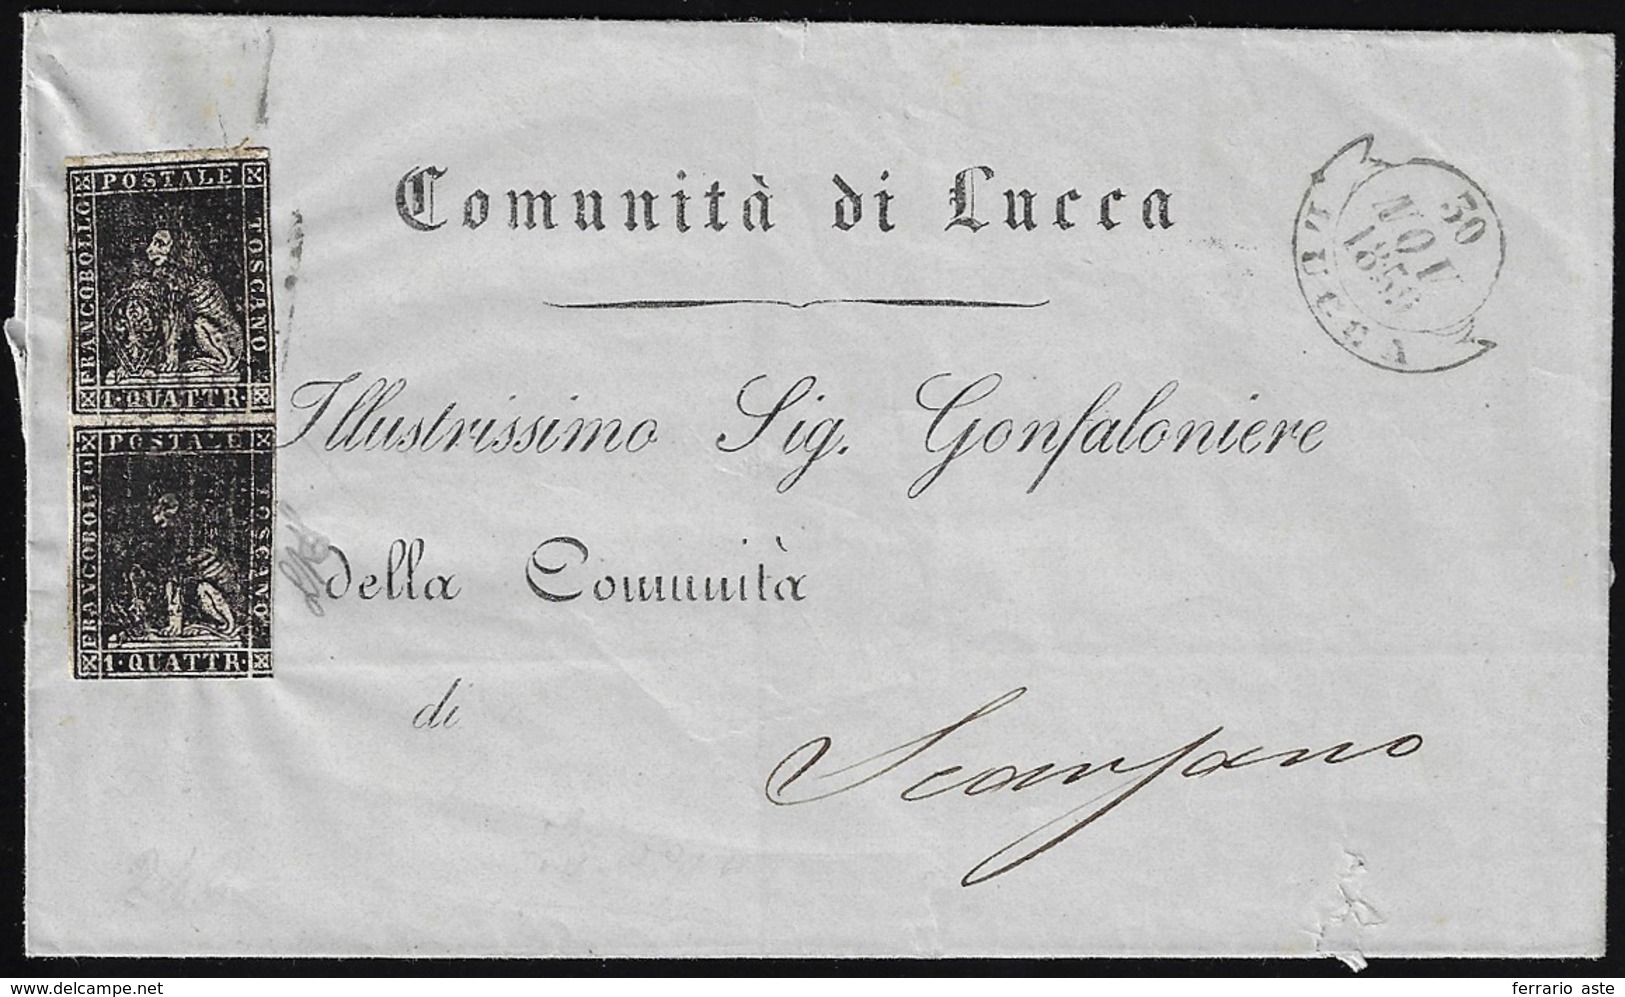 POSTALE
FRANCOBOLLO
TOSCANO
1·QUATTR·
POSTALE
FRANCOBOLLO
TOSCANO
1·QUATTR·
Comunità di Lucca
30
NOV
LUCCA
Illustrissimo Sig. Gonfaloniere
della Comunità
di
Scarpano
ferrario aste